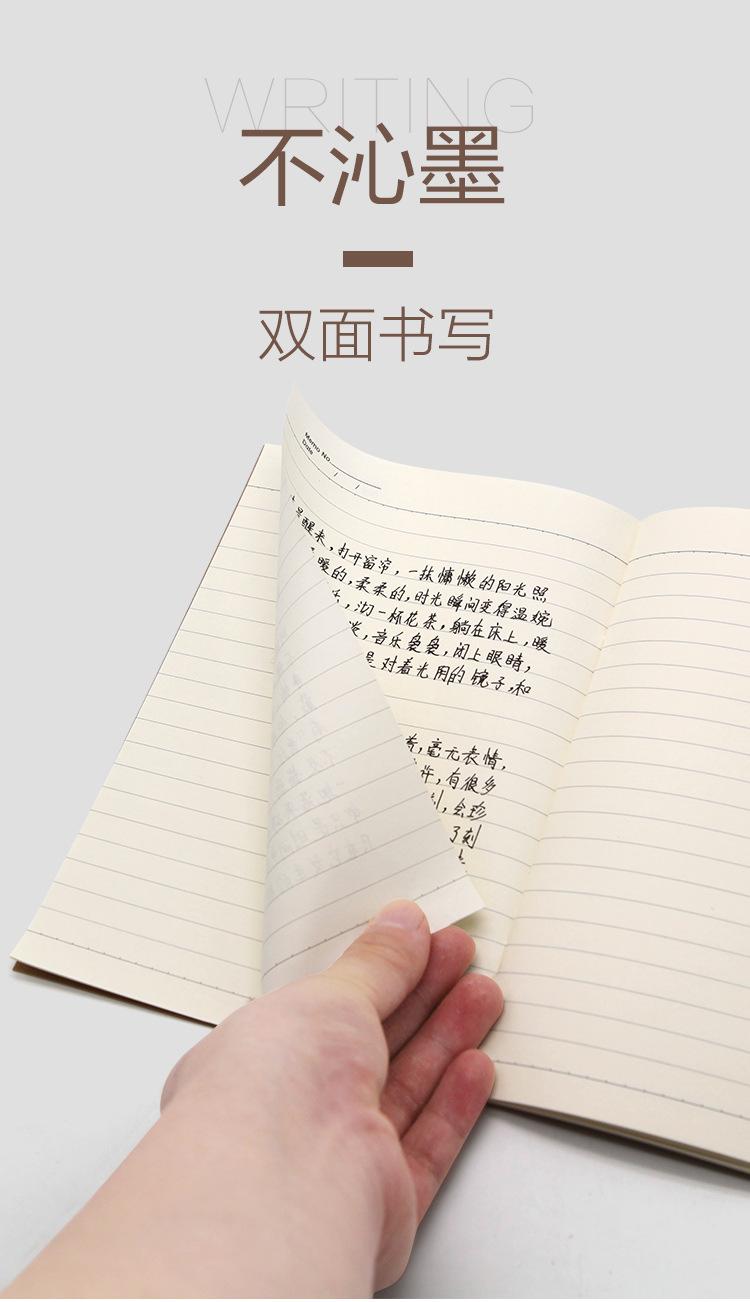 WRITING
不沁墨
双面书写
Memo No
Date / /
醒来，打开窗帘，一抹慵懒的阳光照
暖的，柔柔的，时光瞬间变得温婉
，沏一杯花茶，躺在床上，暖
，音乐袅袅，闭上眼睛，
是对着光用的镜子，和
，毫无表情，
许，有很多
，会珍
了刻